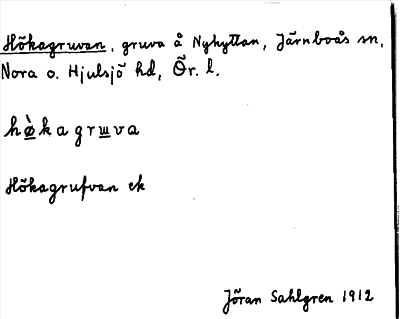 Hökagruvan, gruva å Nyhyttan, Järnboås sn,
Nora o. Hjulsjö hd, Ör. l.
hø̀kagrɯva
Hökagrufvan ek
Jöran Sahlgren 1912